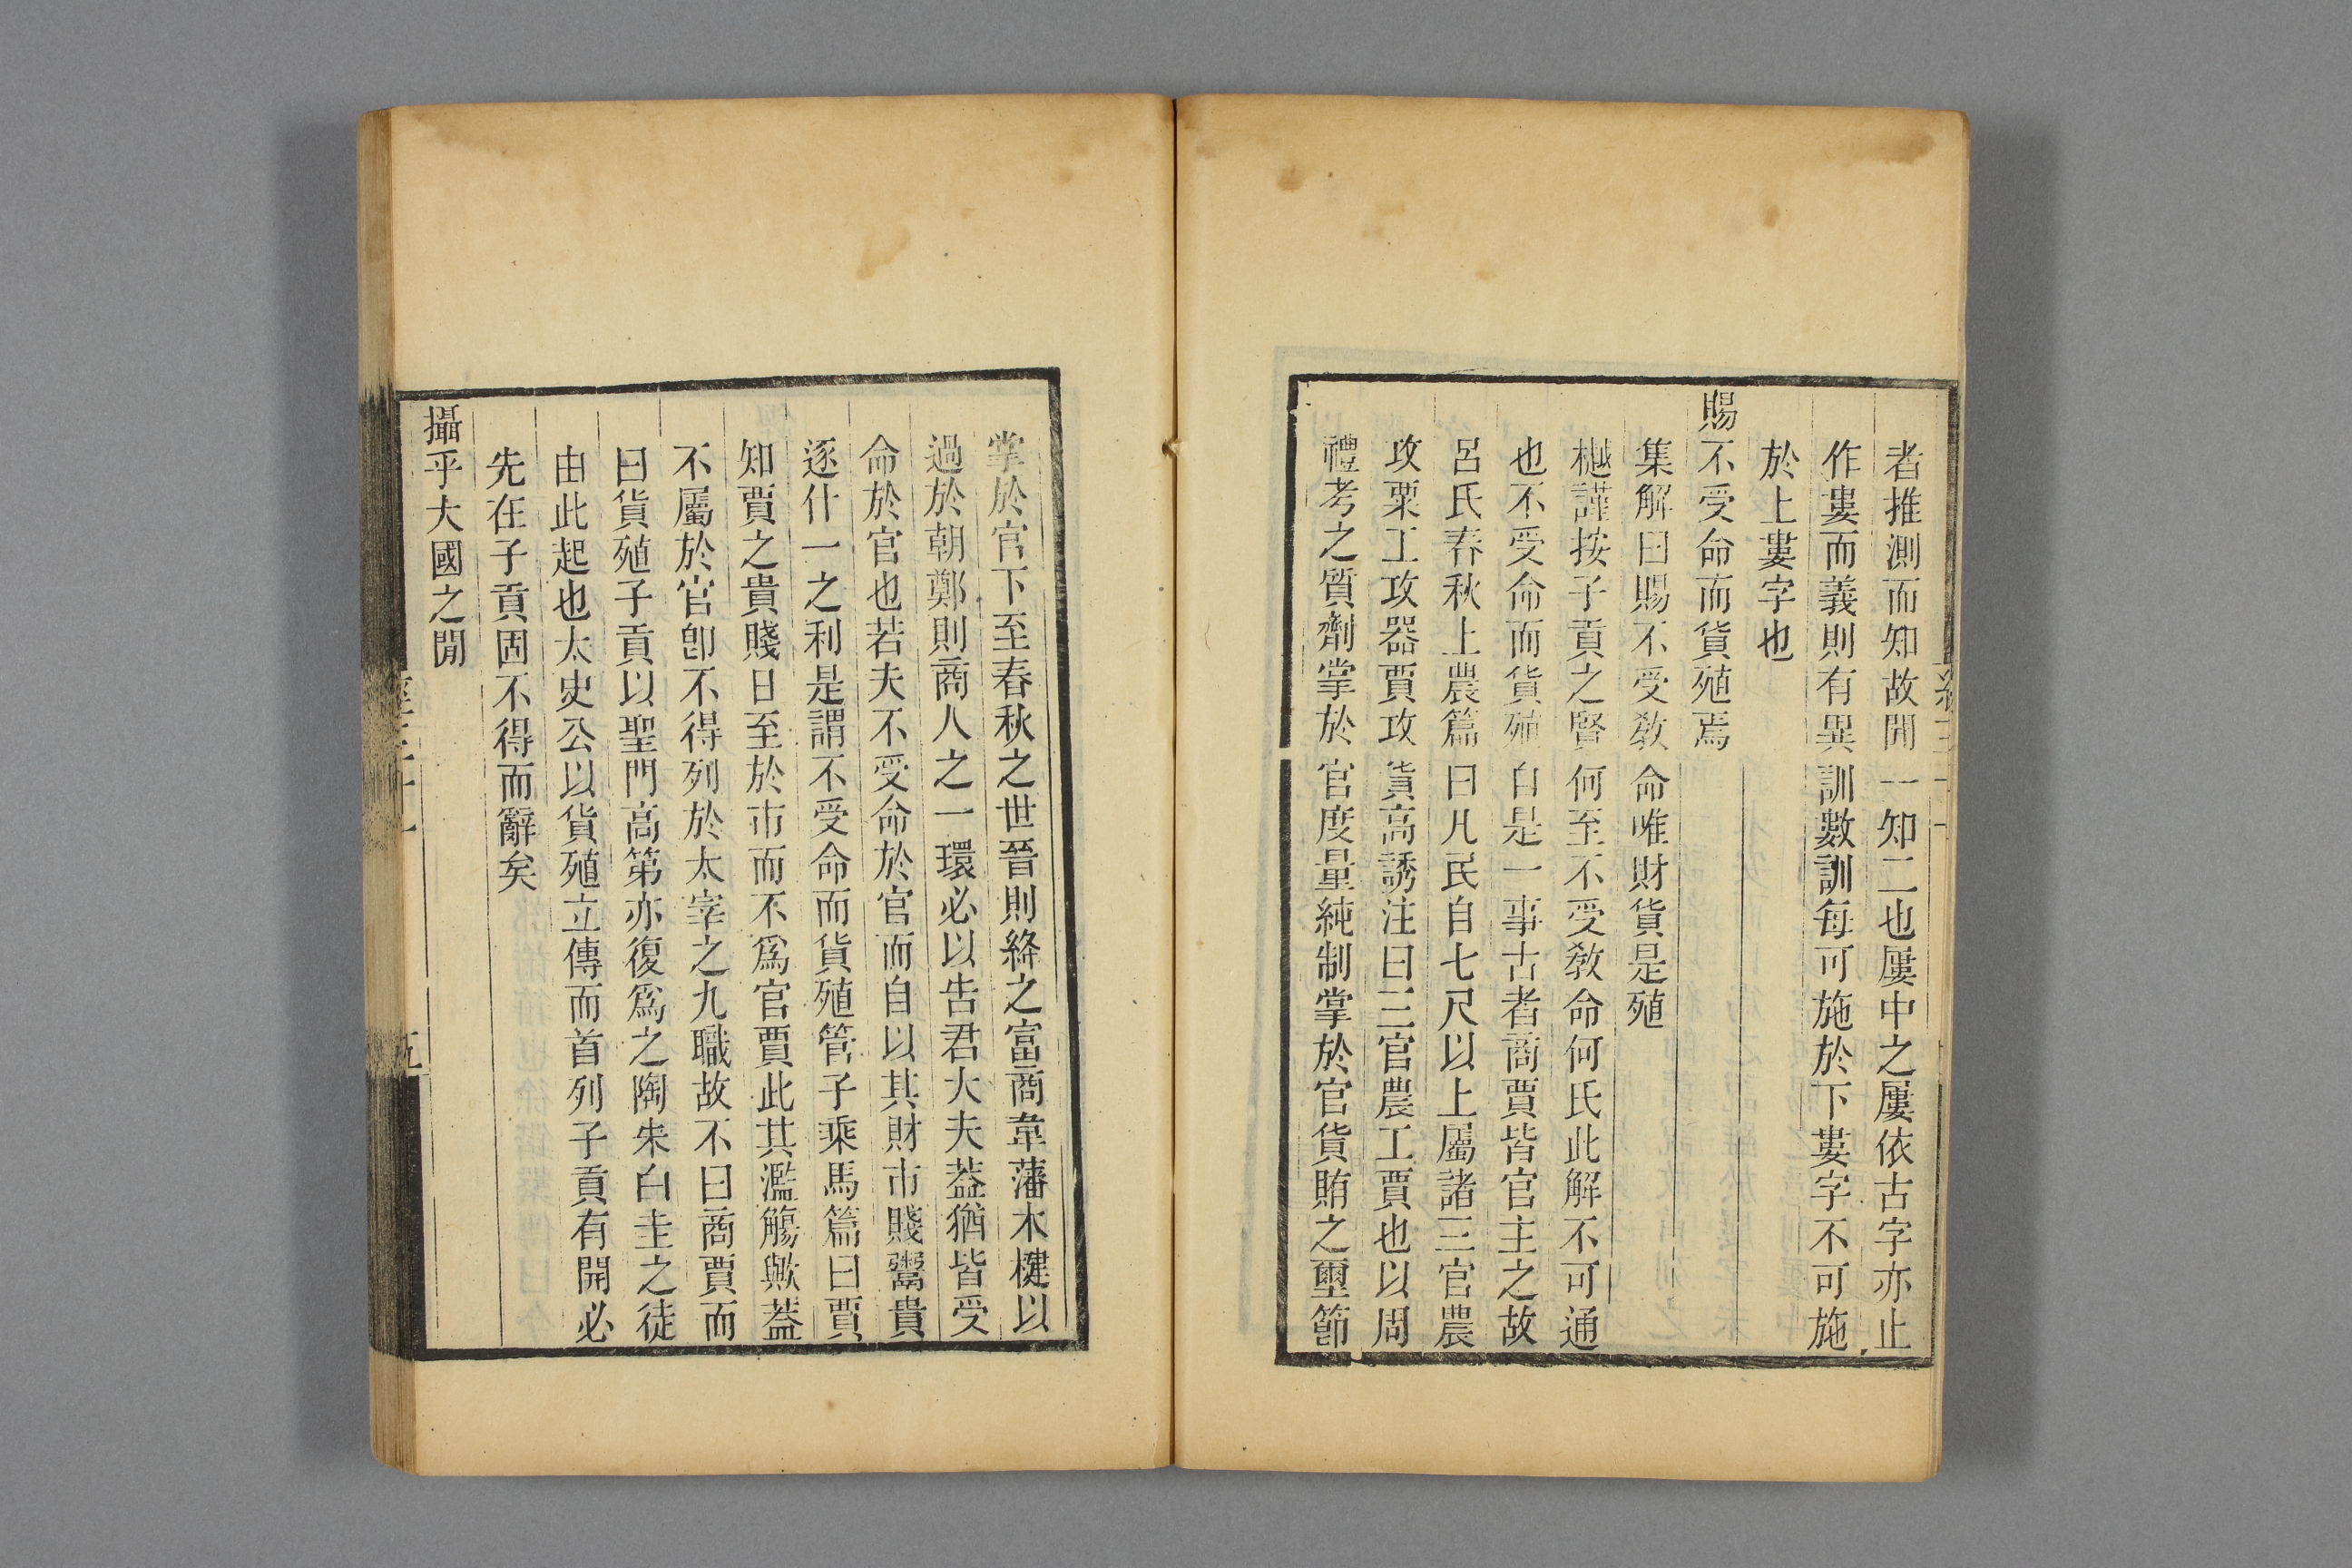 者推測而知故聞一知二也屢中之屢依古字亦止
作婁而義則有異訓數訓每可施於下婁字不可施
於上婁字也
賜不受命而貨殖焉
集解曰賜不受敎命唯財貨是殖
樾謹按子貢之賢何至不受敎命何氏此解不可通
也不受命而貨殖自是一事古者商賈皆官主之故
呂氏春秋上農篇曰凡民自七尺以上屬諸三官農
攻粟工攻器賈攻貨高誘注曰三官農工賈也以周
禮考之質劑掌於官度量純制掌於官貨賄之璽節
掌於官下至春秋之世晉則絳之富商韋藩木楗以
過於朝鄭則商人之一環必以告君大夫葢猶皆受
命於官也若夫不受命於官而自以其財市賤鬻貴
逐什一之利是謂不受命而貨殖管子乘馬篇曰賈
知賈之貴賤日至於市而不爲官賈此其濫觴歟葢
不屬於官卽不得列於太宰之九職故不曰商賈而
曰貨殖子貢以聖門高第亦復爲之陶朱白圭之徒
由此起也太史公以貨殖立傳而首列子貢有開必
先在子貢固不得而辭矣
攝乎大國之閒